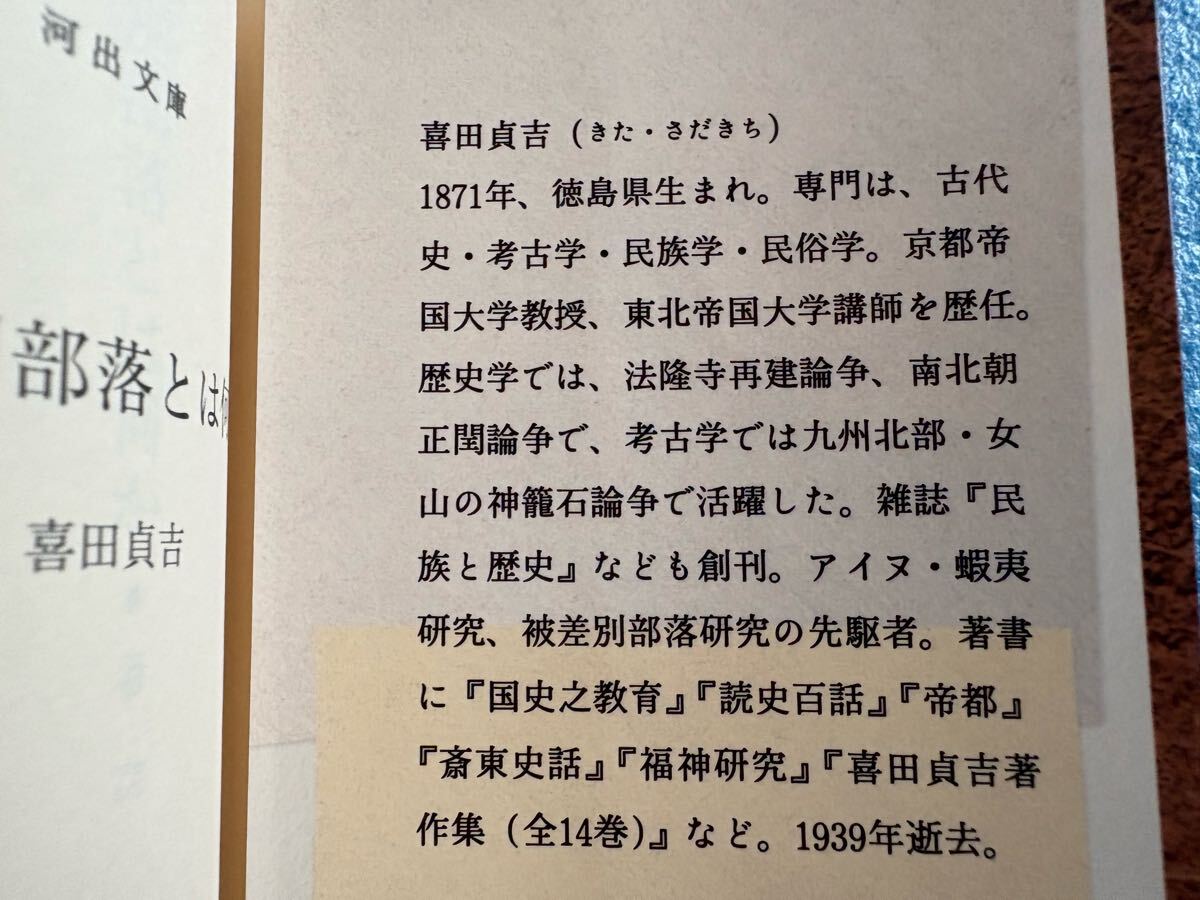 河出文庫
部落とは
喜田貞吉
喜田貞吉（きた・さだきち）
1871年、徳島県生まれ。専門は、古代
史・考古学・民族学・民俗学。京都帝
国大学教授、東北帝国大学講師を歴任。
歴史学では、法隆寺再建論争、南北朝
正閏論争で、考古学では九州北部・女
山の神籠石論争で活躍した。雑誌『民
族と歴史』なども創刊。アイヌ・蝦夷
研究、被差別部落研究の先駆者。著書
に『国史之教育』『読史百話』『帝都』
『斎東史話』『福神研究』『喜田貞吉著
作集（全14巻）』など。1939年逝去。